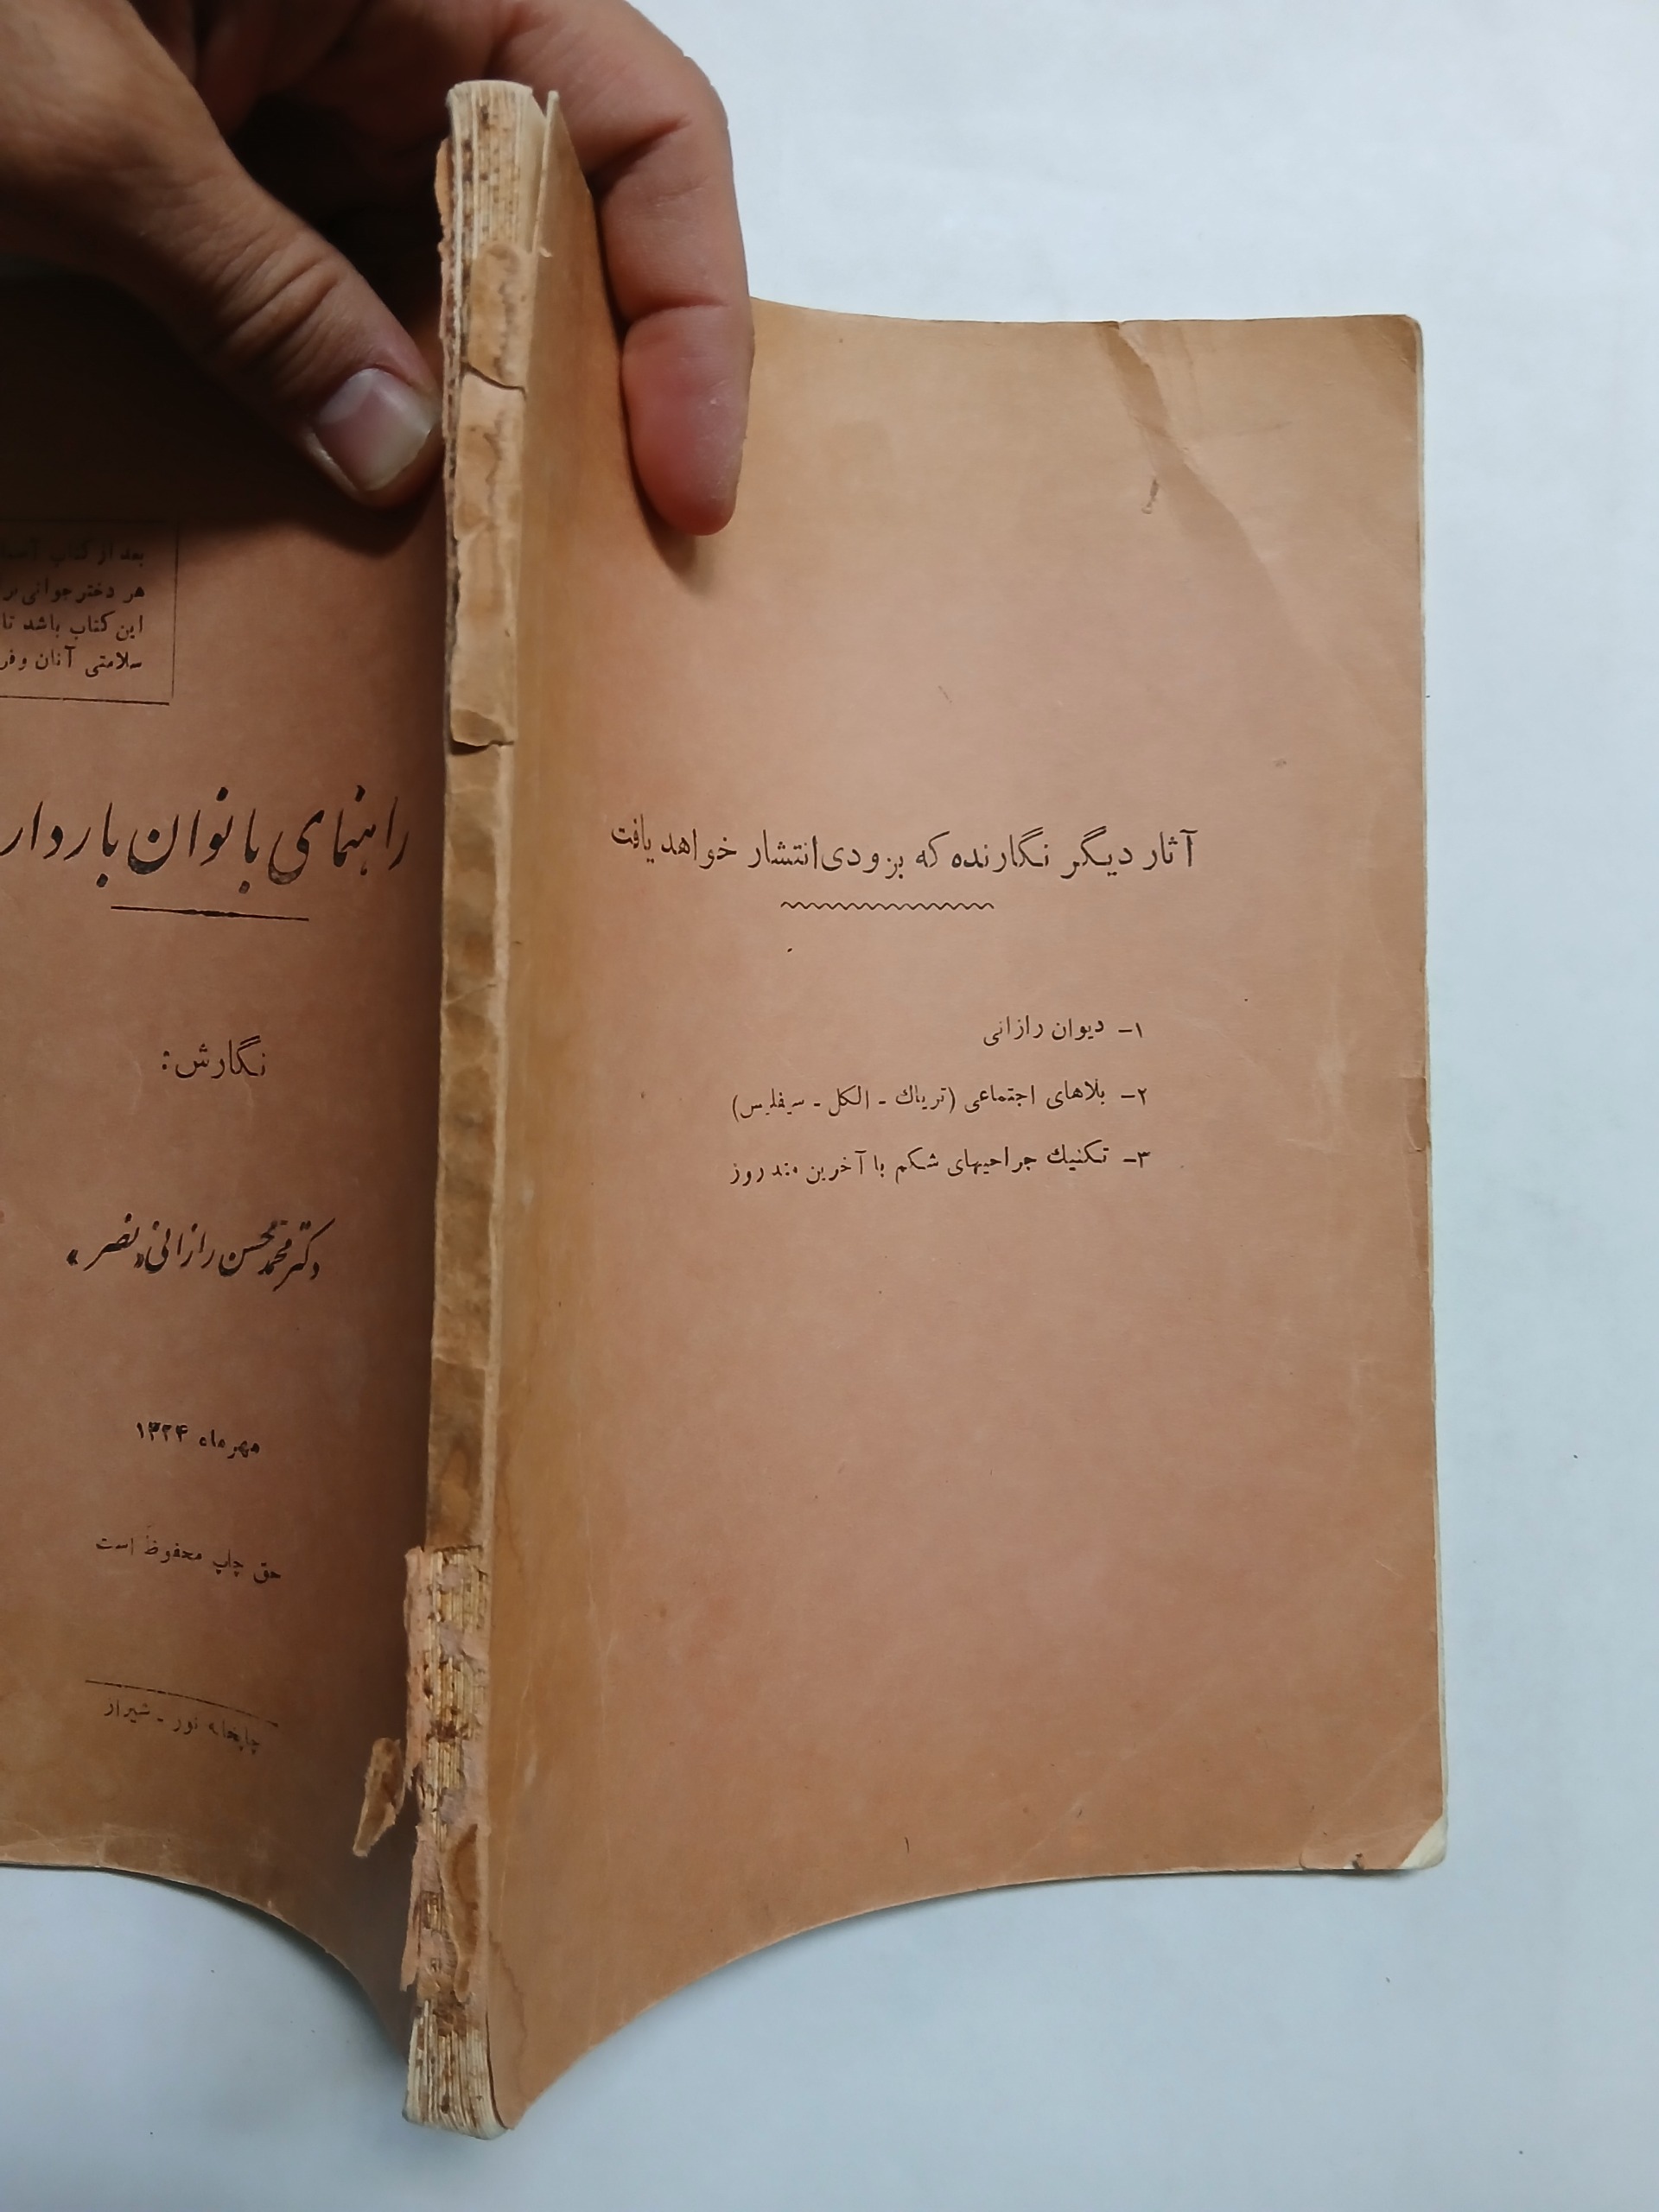 بعد از کتاب
هر دختر جوانی
این کتاب باشد تا
سلامتی آنان و
راهنمای بانوان باردار
نگارش:
دکتر محمد محسن رازانی «نصر»
مهرماه ۱۳۲۴
حق چاپ محفوظ است
چاپخانه نور - شیراز
آثار دیگر نگارنده که بزودی انتشار خواهد یافت
۱- دیوان رازانی
۲- بلاهای اجتماعی (تریاك - الکل - سیفلیس)
۳- تکنیك جراحیهای شکم با آخرین متد روز